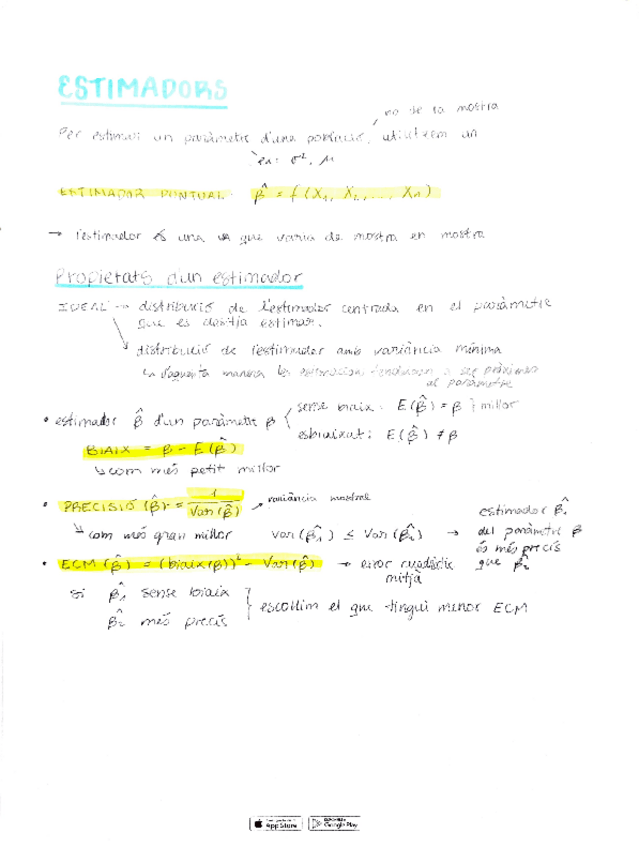 ESTIMADORS
en de la mostra
Per estimar un paràmetre d'una població, utilitzem un
ex: σ², μ
ESTIMADOR PUNTUAL: β̂ = f(X₁, X₂, ..., Xₙ)
→ l'estimador és una va que varia de mostra en mostra
Propietats d'un estimador
IDEAL → distribució de l'estimador centrada en el paràmetre
que es desitja estimar.
distribució de l'estimador amb variància mínima
D'aquesta manera les estimacions tendeixen a ser pròximes
al paràmetre
• estimador β̂ d'un paràmetre β { sense biaix: E(β̂) = β } millor
esbiaixat: E(β̂) ≠ β
BIAIX = β - E(β̂)
↳ com més petit millor
• PRECISIÓ (β̂) = 1/Var(β̂) → variància mostral
↳ com més gran millor var(β̂₁) ≤ Var(β̂₂) → estimador β̂₁
del paràmetre β
és més precís
que β̂₂
• ECM(β̂) = (biaix(β))² - Var(β̂) → error quadràtic
mitjà
si β̂₁ sense biaix
β̂₂ més precís } escollim el que tingui menor ECM
App Store Google Play